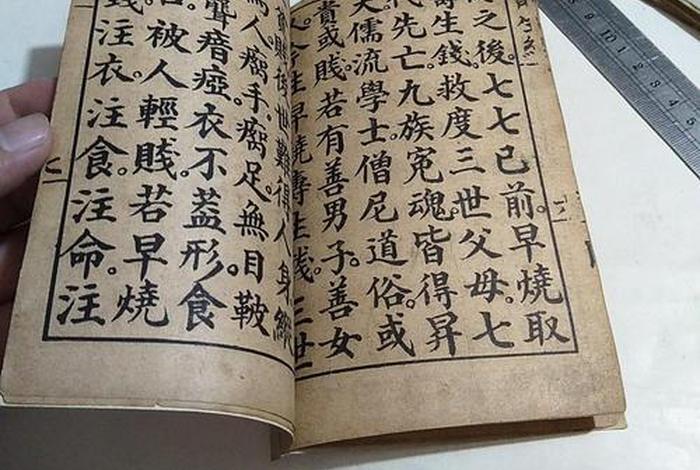 之後。七七已前。早燒取
壽生錢。救度三世父母。七
代先亡。九族冤魂。皆得昇
天。儒流學士僧尼道俗。或
貴或賤。若有善男子。善女
人今生早燒壽生錢。三世
貧賤後世難得人身。縱
人瘸手。瘸足無目皷
聾瘖瘂。衣不葢形。食
被人輕賤。若早燒
錢注衣。注食。注命。注